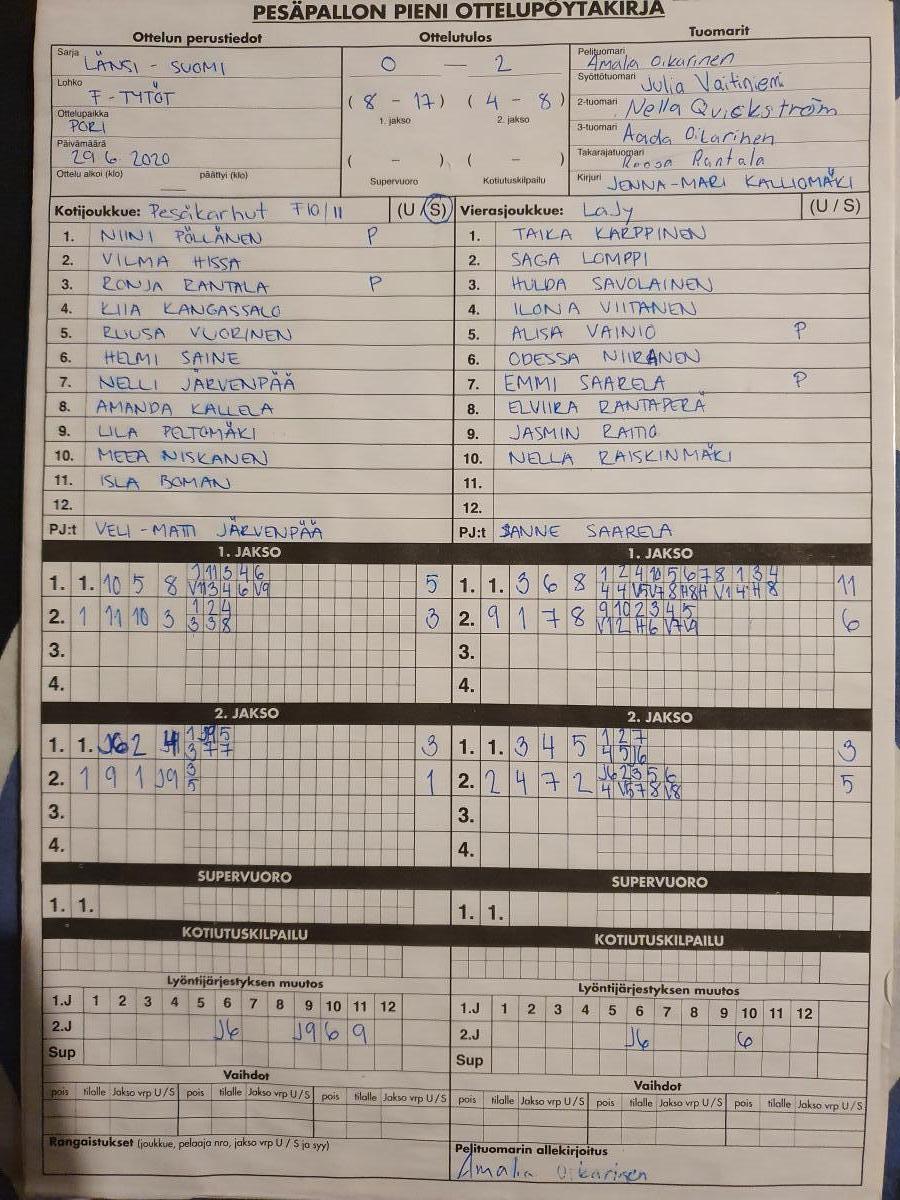 PESÄPALLON PIENI OTTELUPÖYTÄKIRJA
Ottelun perustiedot
Sarja
LÄNSI - SUOMI
Lohko
F - TYTÖT
Ottelupaikka
PORI
Päivämäärä
29 6 2020
Ottelu alkoi (klo) päättyi (klo)
Ottelutulos
0 — 2
( 8 - 17 ) ( 4 - 8 )
1. jakso 2. jakso
( - ) ( - )
Supervuoro Kotiutuskilpailu
Tuomarit
Pelituomari
Amalia Oikarinen
Syöttötuomari
Julia Vaitiniemi
2-tuomari
Nella Quickström
3-tuomari
Aada Oikarinen
Takarajatuomari
Roosa Rantala
Kirjuri
JENNA-MARI KALLIOMÄKI
Kotijoukkue: Pesäkarhut F10/11 (U / S)
1. NIINI PÖLLÄNEN P
2. VILMA HISSA
3. RONJA RANTALA P
4. KIIA KANGASSALO
5. RUUSA VUORINEN
6. HELMI SAINE
7. NELLI JÄRVENPÄÄ
8. AMANDA KALLELA
9. LILA PELTOMÄKI
10. MEEA NISKANEN
11. ISLA BOMAN
12.
PJ:t VELI - MATTI JÄRVENPÄÄ
Vierasjoukkue: LaJy (U / S)
1. TAIKA KARPPINEN
2. SAGA LOMPPI
3. HULDA SAVOLAINEN
4. ILONA VIITANEN
5. ALISA VAINIO P
6. ODESSA NIIRANEN
7. EMMI SAARELA P
8. ELVIIRA RANTAPERÄ
9. JASMIN RAITIO
10. NELLA RAISKINMÄKI
11.
12.
PJ:t SANNE SAARELA
1. JAKSO
1. 1. 10 5 8 5
2. 1 11 10 3 1 2 4 3
3 3 8
3.
4.
1. JAKSO
1. 1. 3 6 8 1 2 4 10 5 6 7 8 1 3 4 11
2. 9 1 7 8 9 10 2 3 4 5 6
3.
4.
2. JAKSO
1. 1. J6 2 3
3 7 7
2. 1 9 1 J9 3 1
5
3.
4.
2. JAKSO
1. 1. 3 4 5 1 2 7 3
2. 2 4 7 2 J6 2 3 5 6 5
4 V5 7 8 V8
3.
4.
SUPERVUORO
1. 1.
SUPERVUORO
1. 1.
KOTIUTUSKILPAILU
KOTIUTUSKILPAILU
Lyöntijärjestyksen muutos
1.J 1 2 3 4 5 6 7 8 9 10 11 12
2.J J6 J9 6 9
Sup
Lyöntijärjestyksen muutos
1.J 1 2 3 4 5 6 7 8 9 10 11 12
2.J J6 6
Sup
Vaihdot
pois tilalle Jakso vrp U/S pois tilalle Jakso vrp U/S pois tilalle Jakso vrp U/S
Vaihdot
pois tilalle Jakso vrp U/S pois tilalle Jakso vrp U/S pois tilalle Jakso vrp U/S
Rangaistukset (joukkue, pelaaja nro, jakso vrp U / S ja syy)
Pelituomarin allekirjoitus
Amalia Oikarinen